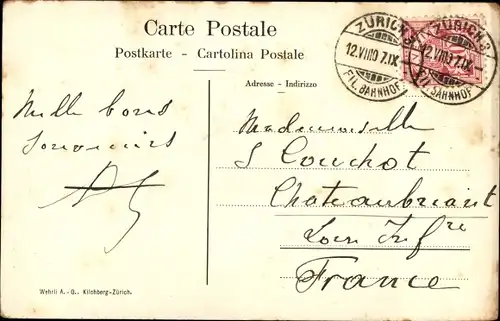 Carte Postale
Postkarte - Cartolina Postale
Adresse - Indirizzo
ZÜRICH
12.VIII.07.IX-
FIL. BAHNHOF
ZÜRICH
12.VIII.07.IX-
FIL. BAHNHOF
Mille bons
souvenirs
Mademoiselle
S Couchot
Chateaubriant
Loire Infre
France
Wehrli A.-G., Kilchberg-Zürich.